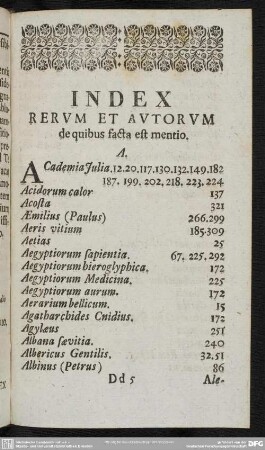 INDEX
RERVM ET AVTORVM
de quibus facta est mentio.
A.
ACademia Julia. 12. 20. 117. 130. 132. 149. 182
187. 199. 202, 218. 223. 224
Acidorum calor 137
Acosta 321
Æmilius (Paulus) 266. 299
Aeris vitium 185. 309
Aetias 25.
Aegyptiorum sapientia. 67. 225. 292
Aegyptiorum hieroglyphica. 172
Aegyptiorum Medicina. 225
Aegyptiorum aurum. 172
Aerarium bellicum. 15
Agatharchides Cnidius. 172
Agylæus 251
Albana sævitia. 240
Albericus Gentilis. 32. 51
Albinus (Petrus) 86
Dd 5 Ale-